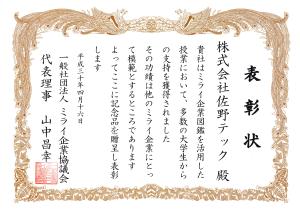 表彰状
株式会社佐野テック 殿
貴社はミライ企業図鑑を活用した
授業において、多数の大学生から
の支持を獲得されました
その功績は他のミライ企業にとっ
て模範とするところであります
よってここに記念品を贈呈し表彰
します
平成三十年四月十六日
一般社団法人 ミライ企業協議会
代表理事 山中昌幸